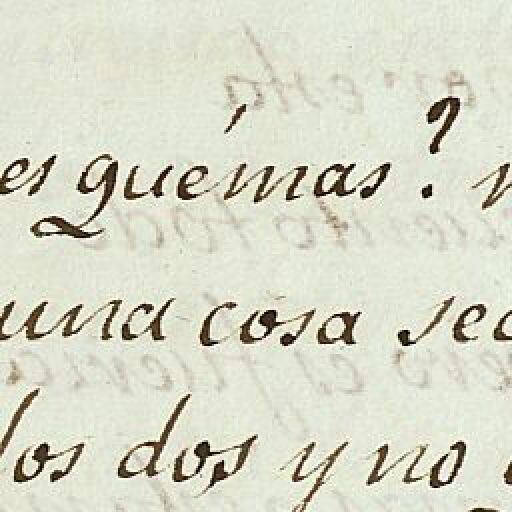 es qué mas? n
una cosa sea
los dos y no